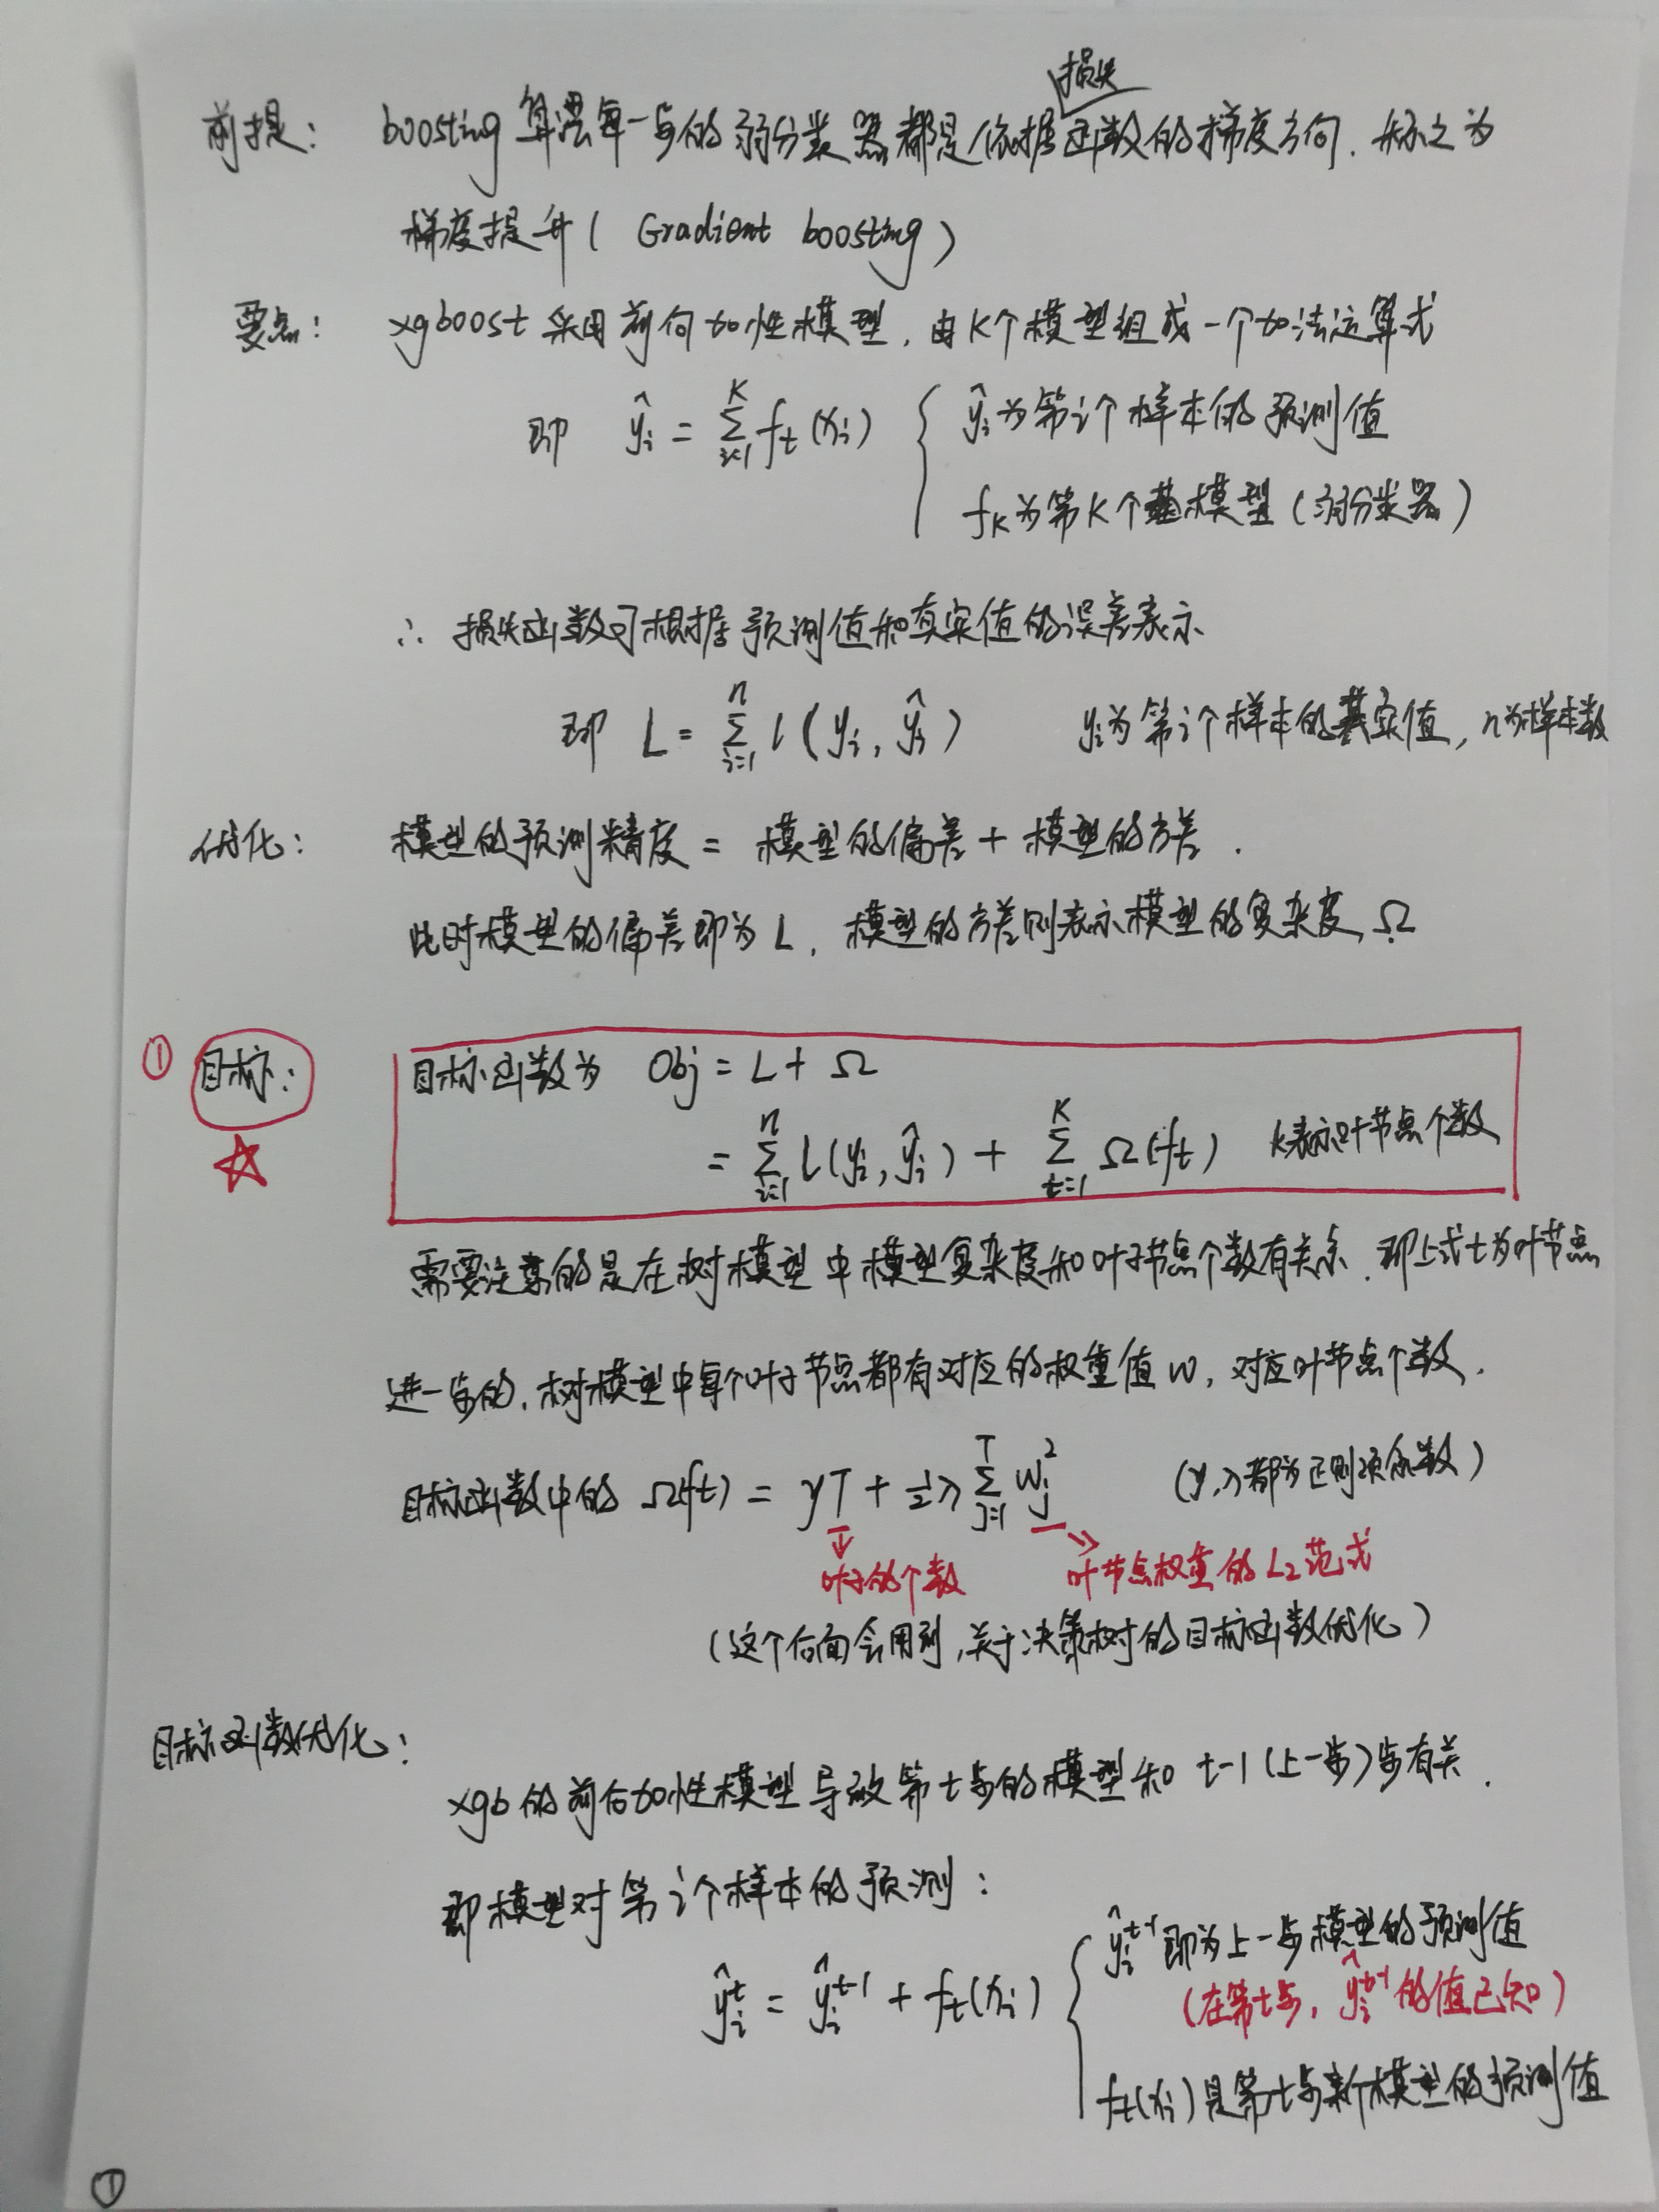 前提： boosting 算法每一步的弱分类器都是依据损失函数的梯度方向，称之为
梯度提升（ Gradient boosting ）
要点： xgboost 采用前向加性模型，由K个模型组成一个加法运算式
即 ŷᵢ = Σᵢ₌₁ᴷ fₜ(xᵢ) { ŷᵢ为第i个样本的预测值
f_K为第K个基模型（弱分类器）
∴ 损失函数可根据预测值和真实值的误差表示
即 L = Σᵢ₌₁ⁿ l(yᵢ, ŷᵢ) yᵢ为第i个样本的真实值，n为样本数
优化： 模型的预测精度 = 模型的偏差 + 模型的方差．
此时模型的偏差即为 L，模型的方差则表示模型的复杂度，Ω
① 目标： 目标函数为 Obj = L + Ω
= Σᵢ₌₁ⁿ l(yᵢ, ŷᵢ) + Σₜ₌₁ᴷ Ω(fₜ) k表示叶节点个数
需要注意的是在树模型中模型复杂度和叶子节点个数有关系．即上式t为叶节点
进一步的，树模型中每个叶子节点都有对应的权重值w，对应叶节点个数．
目标函数中的 Ω(fₜ) = γT + ½λ Σⱼ₌₁ᵀ wⱼ² （γ,λ都为正则项系数）
叶子的个数 叶节点权重的L₂范式
（这个后面会用到，关于决策树的目标函数优化）
目标函数优化：
xgb的前后加性模型导致第t步的模型和 t-1（上一步）步有关．
即模型对第i个样本的预测：
ŷᵢᵗ = ŷᵢᵗ⁻¹ + fₜ(xᵢ) { ŷᵢᵗ⁻¹即为上一步模型的预测值
（在第t步，ŷᵢᵗ⁻¹的值已知）
fₜ(xᵢ)是第t步新模型的预测值
①